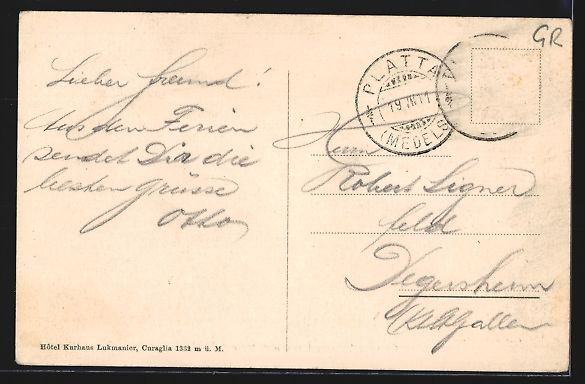 GR
PLATTA
19.
(MEDELS)
Lieber Freund!
Aus den Ferien
sendet Dir die
besten Grüsse
Otto
Herrn
Robert Signer
feld
Degersheim
Kt. St. Gallen
Hôtel Kurhaus Lukmanier, Curaglia 1332 m ü. M.